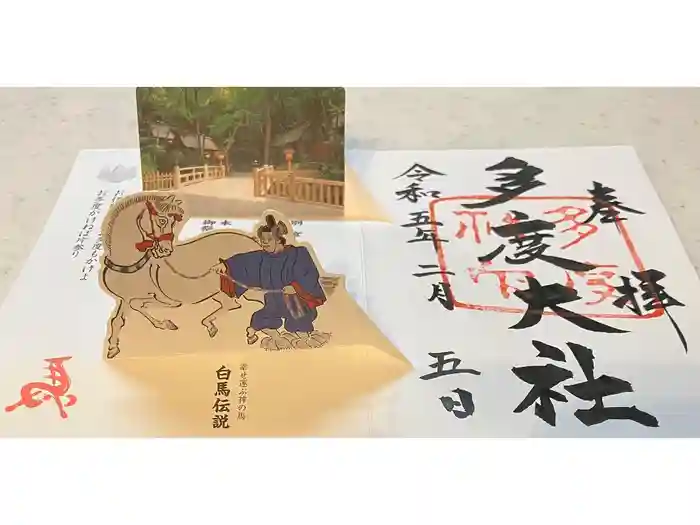 奉拝
多度大社
令和五年二月
五日
お伊
多度もかけよ
お多度かけねば片参り
本
御
別
宮
幸せ運ぶ神の馬
白馬伝説